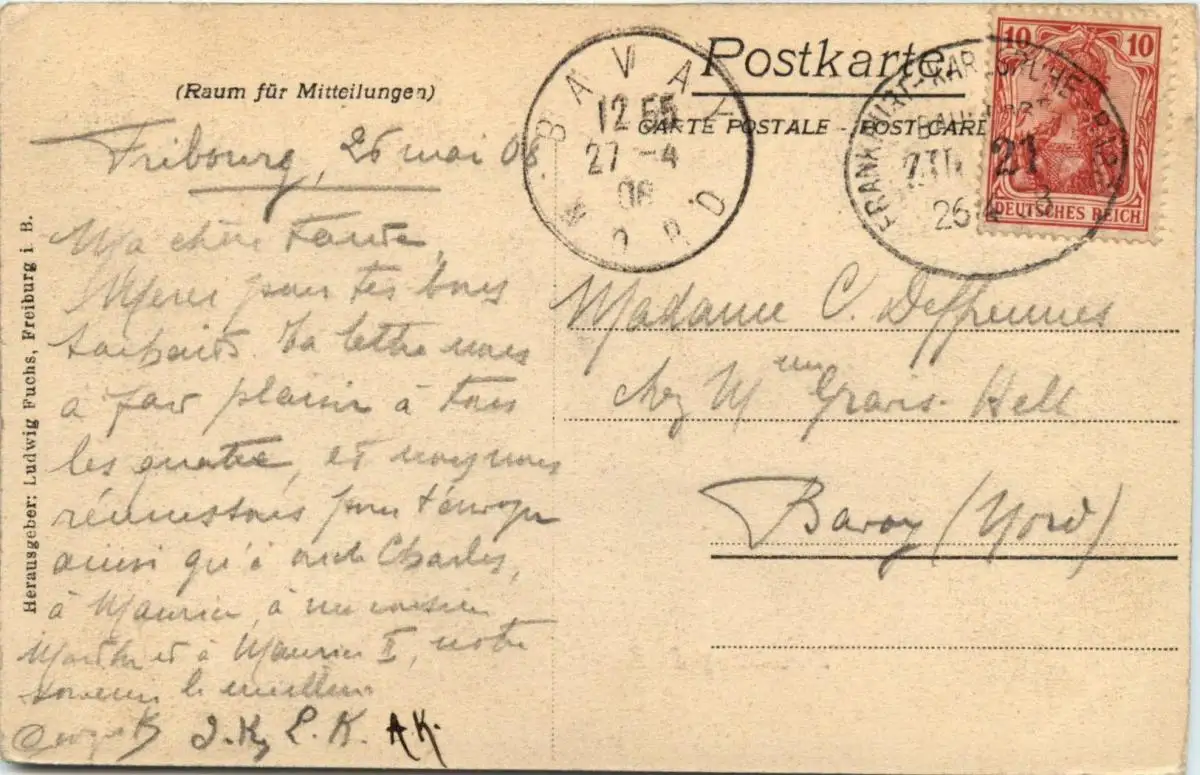 Postkarte
CARTE POSTALE - POST CARD
(Raum für Mitteilungen)
Herausgeber: Ludwig Fuchs, Freiburg i. B.
BAVAY
12 55
27 -4
08
NORD
FRANKFURT-KARLSRUHE-BASEL
BAHNPOST
ZUG 21
26 4 8
10 10
DEUTSCHES REICH
Fribourg, 26 mai 08
Ma chère Tante,
Merci pour tes bons
souhaits. Ta lettre nous
a fait plaisir à tous
les quatre, et nous nous
réunissons pour t'envoyer
ainsi qu'à oncle Charles,
à Maurice, à ma cousine
Marthe et à Maurice II, notre
souvenir le meilleur
J. K, L. K. A K.
Madame C. Deffrennes
chez Mme Gravis-Helk
Bavay (Nord)